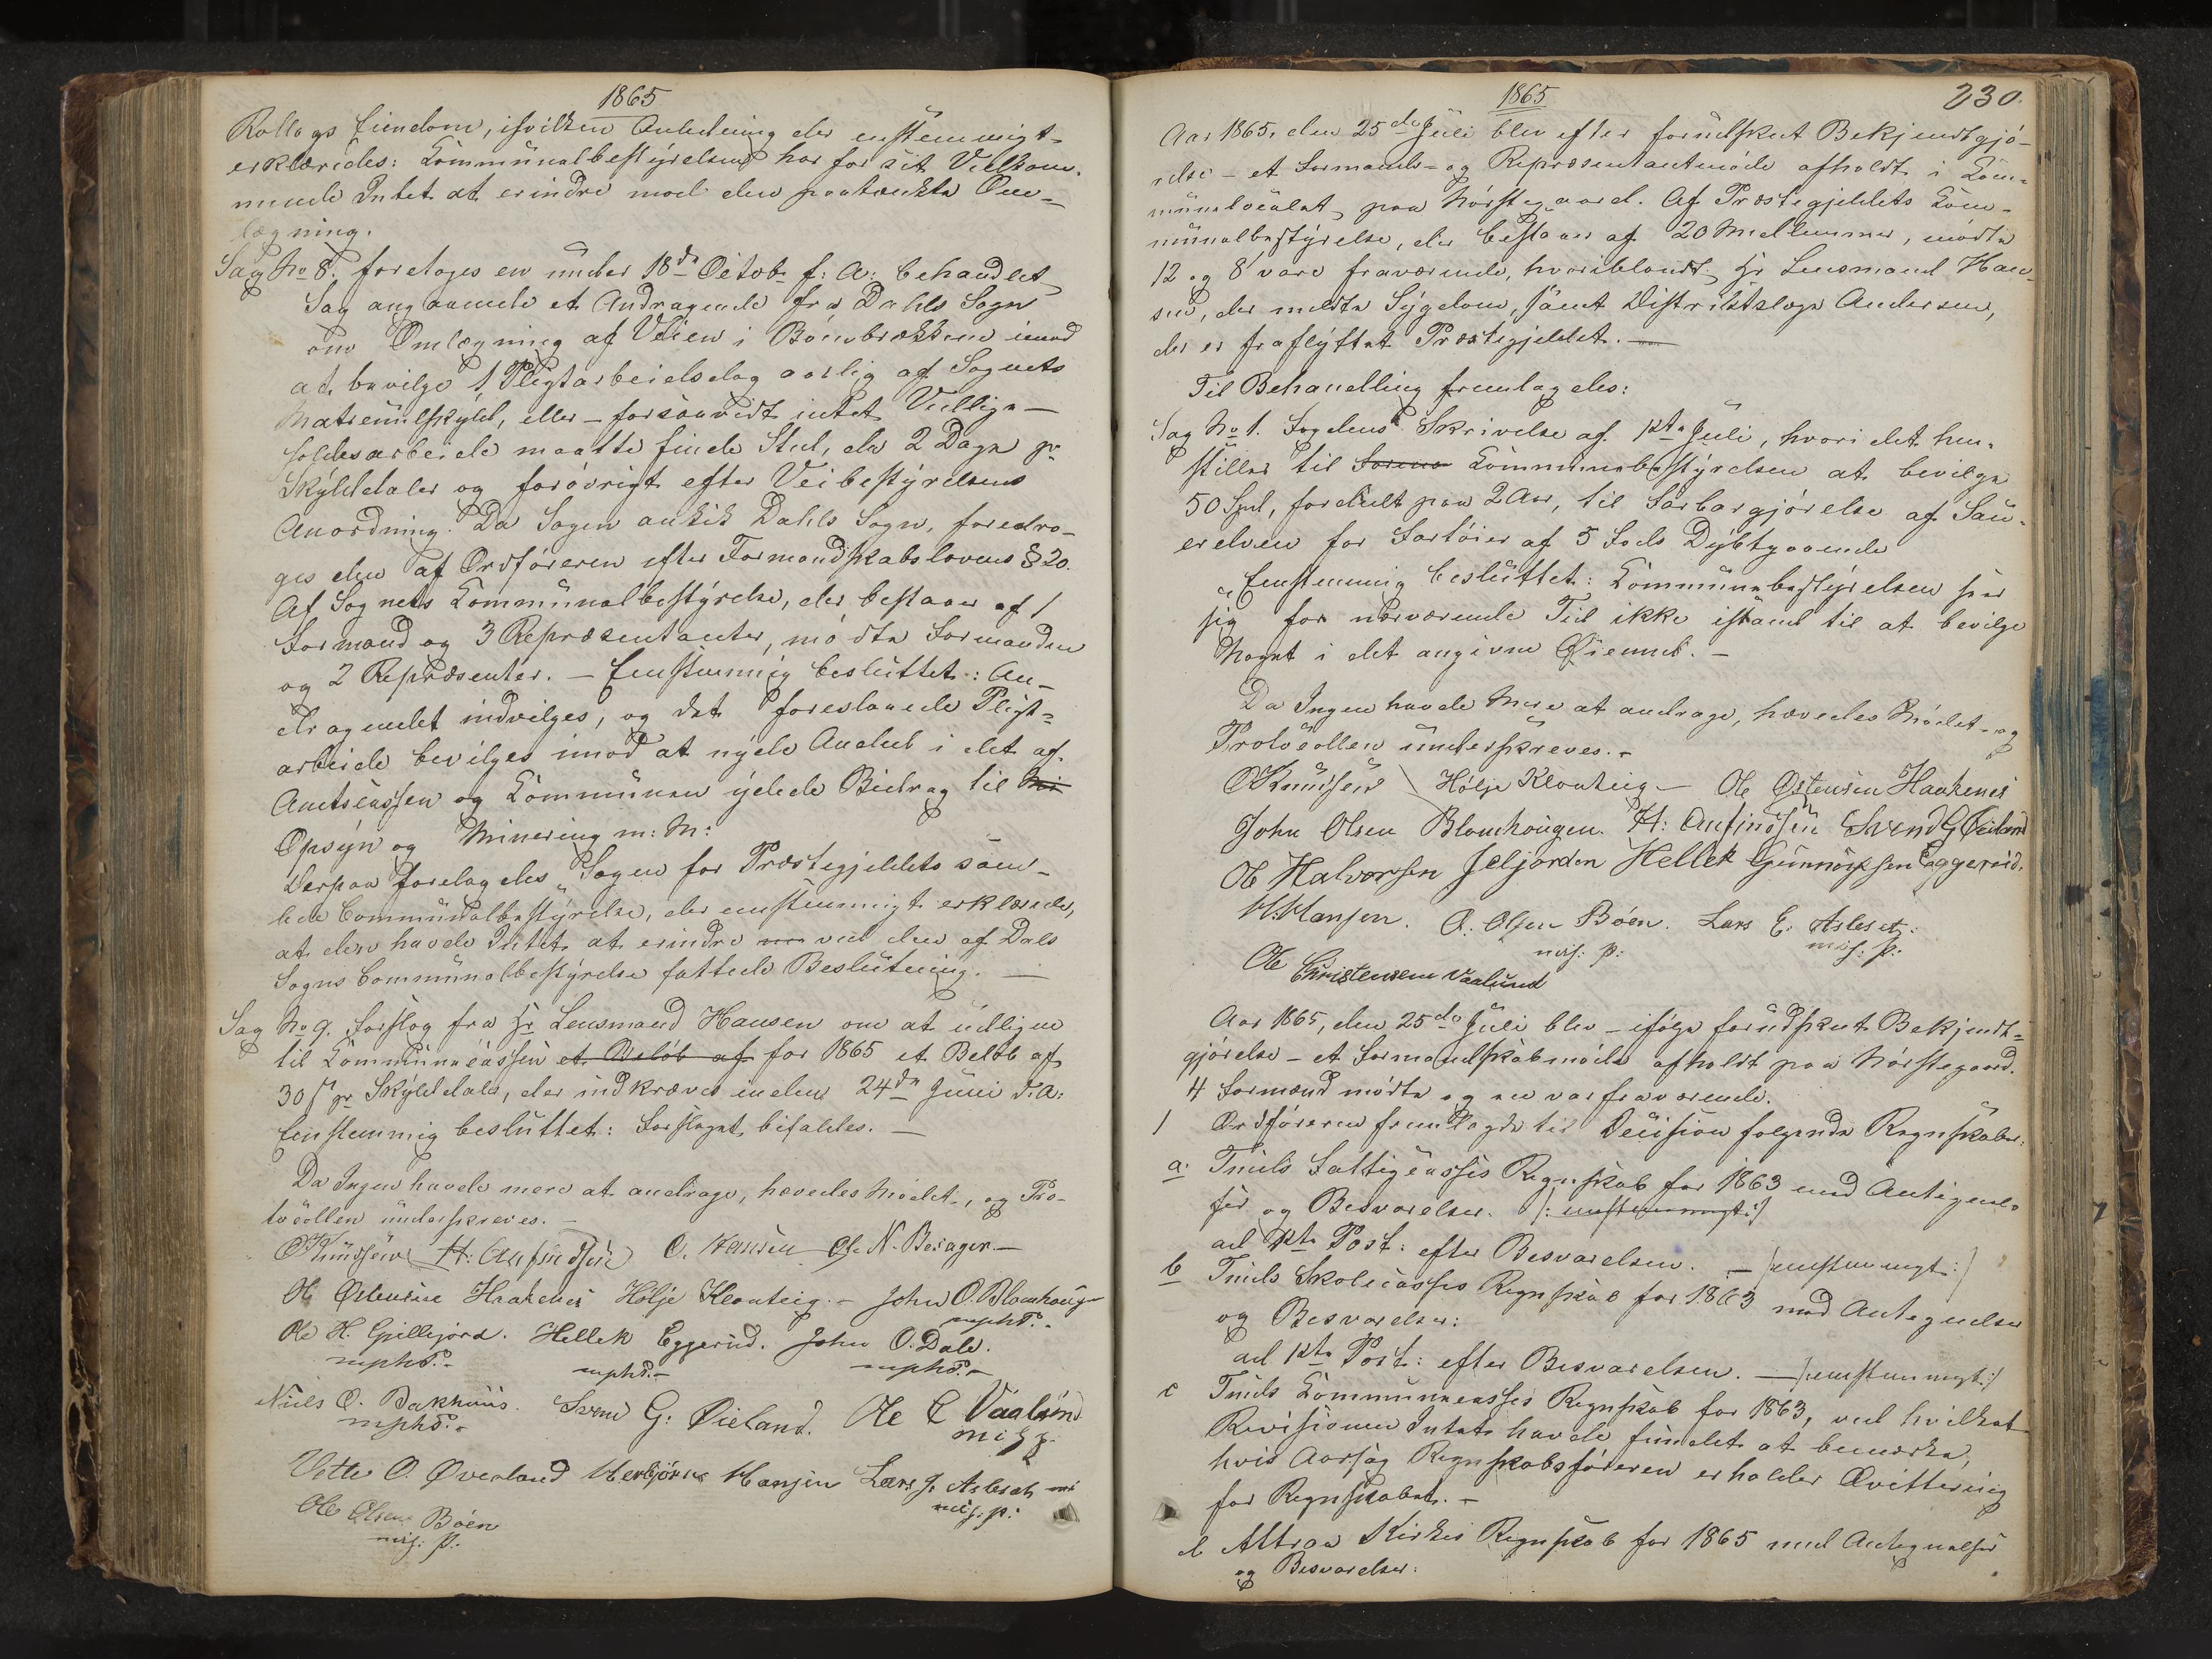 1865
Rollags Eiendom, ihvilken Anledning der enstemmigt
erklæredes: Communalbestyrelsen har for sit Vedkom-
mende Intet at erindre mod den paatænkte Om-
lægning.
Sag No 8. foretoges en under 18de Octob. f: A: behandlet
Sag angaaende et Andragende fra Dahls Sogn
om Omlægning af Veien i Böenbrækken imod
at bevilge 1 Pligtarbeidsdag aarlig af Sognets
Matriculskyld, eller - forsaavidt intet Vedlige-
holdesarbeide maatte finde Sted, da 2 Dage pr
Skylddaler og forövrigt efter Veibestyrelsens
Anordning. Da Sagen ankik Dahls Sogn, foredro-
ges den af Ordföreren efter Formandskabslovens § 20.
Af Sognets Communalbestyrelse, der bestaaer af 1
Formand og 3 Repræsentanter, mödte Formanden
og 2 Repræsenter. - Eenstemmig besluttet: An-
dragendet indvilges, og det foreslaaede Pligt-
arbeide bevilges imod at nyde Andeel i det af
Amtscassen og Communen ydede Bidrag til
Opsyn og Minering m: M:
Derpaa forelagdes Sagen for Præstegjeldets sam-
lede Communalbestyrelse, der enstemmigt erklærede,
at den havde Intet at erindre ved den af Dals
Sogns Communalbestyrelse fattede Beslutning. -
Sag No 9. Forslag fra Hr Lensmand Hansen om at udligne
til Communecassen et Beløb af for 1865 et Beløb af
30 s pr Skylddaler, der indkræves inden 24de Juni d. A:
Eenstemmig besluttet: Forslaget bifaldes. -
Da Ingen havde mere at andrage, hævedes Mödet, og Pro-
tocollen underskreves. -
OKnudsen H: Anfindsen O. Hansen Ole N. Berager. -
Ole Østensen Haakenes Hölje Klouteig. - John O. Blomhougen
mphP. -
Ole H. Gpillejord. Hellek Eggerud. John O. Dale.
mphP. - mphP. - mphP. -
Niels O. Bakhuus. Svend G: Øieland. Ole C Vaalund
mphP. - m i g p.
Vetle O. Øverland Herbjörn Hansen Lars G. Asleset
mig. p:
Ole Olsen Böen
mig. p:
1865
230.
Aar 1865, den 25de Juli blev efter forudskeet Bekjendtgjö-
relse - et Formands- og Repræsentantmöde afholdt i Com-
munelocalet paa Nörstegaard. Af Præstegjeldets Com-
munalbestyrelse, der bestaaer af 20 Medlemmer, mödte
12 og 8 vare fraværende, hvoriblandt Hr Lensmand Han-
sen, der meldte Sygdom, samt Distriktslæge Andersen,
der er fraflyttet Præstegjeldet. -
Til Behandling fremlagdes:
Sag No 1. Fogdens Skrivelse af 1ste Juli, hvori det hen-
stilles til Communebestyrelsen at bevilge
50 Spd, fordeelt paa 2 Aar, til Farbargjörelse af Sau-
erelven for Fartöier af 5 Fods Dybtgaaende
Eenstemmig besluttet: Communebestyrelsen seer
sig for nærværende Tid ikke istand til at bevilge
Noget i det angivne Øiemed. -
Da Ingen havde Mere at andrage, hævedes Mödet - og
Protocollen underskreves. -
OKnudsen Hölje Klouteig - Ole Østensen Haakenes
John Olsen Blomhougen. H: Anfindsen Svend G Øieland
Ole Halvorsen Jeljorden Hellek Gunnöysen Eggerud.
H. Hansen. O. Olsen Böen. Lars G. Asleset.
mig. p: mig. p:
Ole Christensen Vaalund
Aar 1865, den 25de Juli blev - ifölge forudskeet Bekjendt-
gjörelse - et Formandskabsmöde afholdt paa Nörstegaard.
4 Formænd mödte og en var fraværende.
1 Ordföreren fremlagde til Decision fölgende Regnskaber:
a. Tuuls Fattigcasses Regnskab for 1863 med Antegnel-
ser og Besvarelser. /: enstemmigt :/
ad 1ste Post: efter Besvarelsen. - /: enstemmigt :/
b Tuuls Skolecasses Regnskab for 1863 med Antegnelser
og Besvarelser:
ad 1ste Post: efter Besvarelsen. - /: enstemmigt :/
c Tuuls Communecasses Regnskab for 1863, ved hvilket
Revisionen Intet havde fundet at bemærke,
hvis Aarsag Regnskabsföreren erholder Qvittering
for Regnskabet. -
d Attraa Kirkes Regnskab for 1865 med Antegnelser
og Besvarelser: